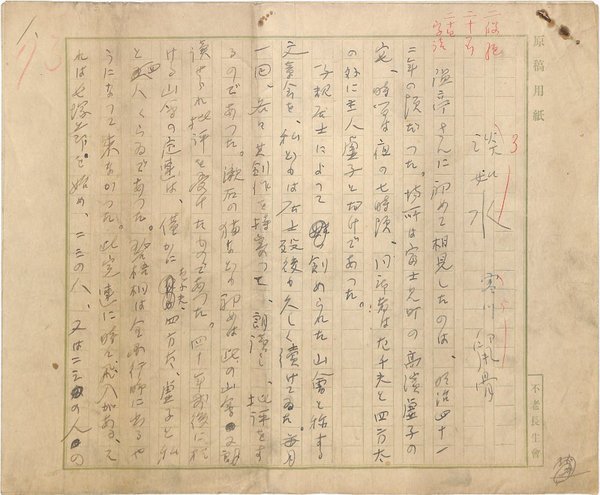 原稿用紙
不老長生會
二段組
淡如水 寒川鼠骨
温亭さんに初めて相見したのは、明治四十一
二年の頃だつた。場所は富士見町の高濱虚子の
宅、時間は夜の七時頃、同席者は左千夫と四方太
の外に主人虚子とだけであつた。
子規居士によつて創められた山會と稱する
文章會を、私どもは居士歿後か久しく續けてゐた。毎月
一回、各々其創作を持寄つて、朗讀し、批評をす
るのであつた。漱石の猫なども初めは此の山會で朗
讀せられ批評を受けたものであつた。四十年前後に於
ける山會の定連は、僅かに左千夫四方太、虚子と私
と四人くらゐであつた。碧梧桐は全國行脚に出てや
うになつて來なかつた。此定連に時々飛入がある、そ
れは七塚芳を始め、二三の人、又は二三の人の